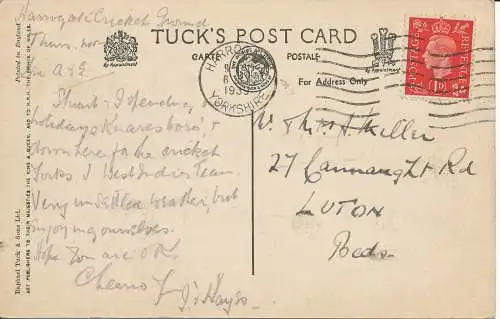 Harrogate Cricket Ground
Thurs. morn
TUCK'S POST CARD
CARTE POSTALE
By Appointment
By Appointment
For Address Only
HARROG
1939
YORKSHIRE
POSTAGE
REVENUE
1D
Dear A & E
Stuart & I spending a
holiday Knaresboro' &
down here for the cricket
Yorks & West Indies team.
Very unsettled weather, but
enjoying ourselves.
Hope you are O.K.
Cheerio
J. Hayes
Miller
27 Connaught Rd
LUTON
Beds.
Printed in England
Raphael Tuck & Sons Ltd.
ART PUBLISHERS TO THEIR MAJESTIES THE KING & QUEEN, AND TO H.R.H. THE PRINCE OF WALES.